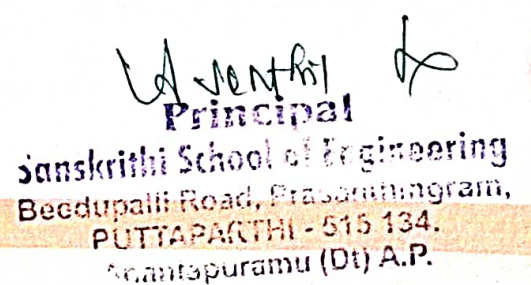 Senthil
Principal
Sanskrithi School of Engineering
Beedupalli Road, Prasanthingram,
PUTTAPARTHI - 515 134.
Anantapuramu (Dt) A.P.